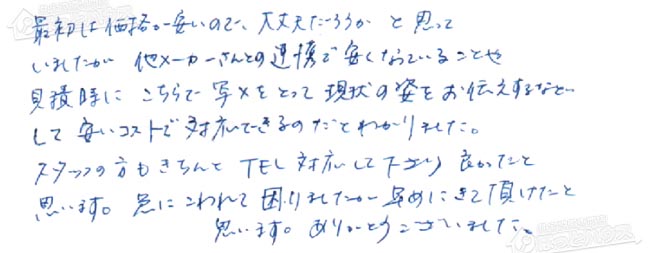 最初は価格が安いので、大丈夫だろうか と思って
いましたが 他メーカーさんとの連携で安くなっていることや
見積時に こちらで 写メをとって 現状の姿をお伝えするなど
して 安いコストで対応できるのだとわかりました。
スタッフの方もきちんと TEL 対応して下さり 良かったと
思います。急にこわれて困りましたが早めにきて頂けたと
思います。ありがとうございました。